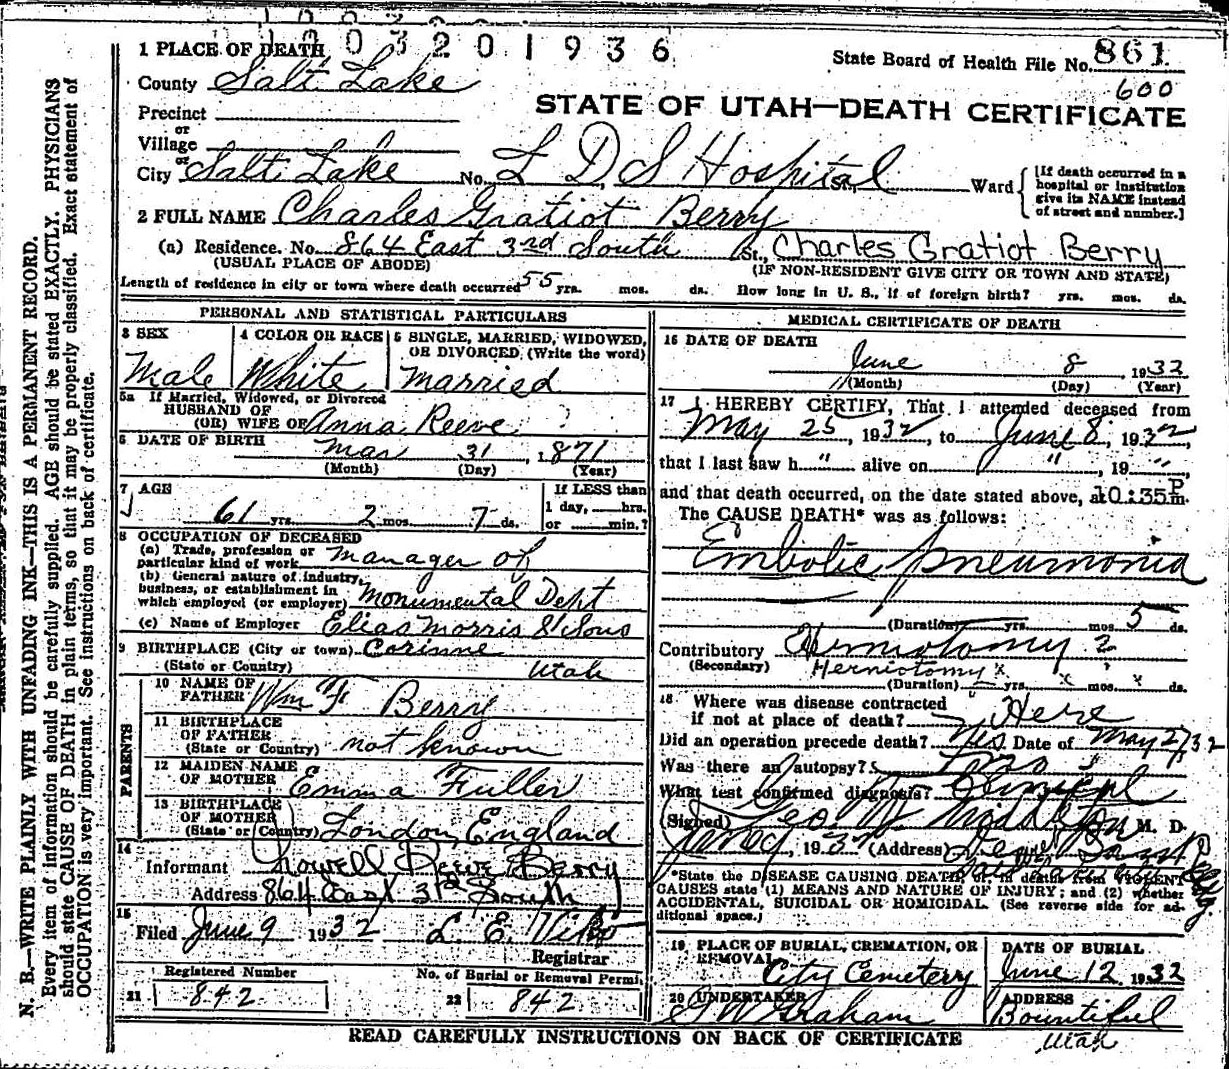 1003201936
1 PLACE OF DEATH
State Board of Health File No. 861
County Salt Lake
600
STATE OF UTAH—DEATH CERTIFICATE
Precinct
or
Village
or
City Salt Lake No. L D S Hospital St. Ward
[If death occurred in a hospital or institution give its NAME instead of street and number.]
2 FULL NAME Charles Gratiot Berry
(a) Residence. No. 864 East 3rd South St., Charles Gratiot Berry
(USUAL PLACE OF ABODE) (IF NON-RESIDENT GIVE CITY OR TOWN AND STATE)
Length of residence in city or town where death occurred 55 yrs. mos. ds. How long in U. S., if of foreign birth? yrs. mos. ds.
PERSONAL AND STATISTICAL PARTICULARS
3 SEX
Male
4 COLOR OR RACE
White
5 SINGLE, MARRIED, WIDOWED, OR DIVORCED, (Write the word)
married
5a If Married, Widowed, or Divorced
HUSBAND OF
(OR) WIFE OF Anna Reeve ?
6 DATE OF BIRTH
Mar 31, 1871
(Month) (Day) (Year)
7 AGE
61 yrs. 2 mos. 7 ds.
If LESS than
1 day, hrs.
or min.?
8 OCCUPATION OF DECEASED
(a) Trade, profession or
particular kind of work manager of
(b) General nature of industry,
business, or establishment in
which employed (or employer) Monumental Dept
(c) Name of Employer Elias Morris & Sons
9 BIRTHPLACE (City or town) Corinne
(State or Country) Utah
PARENTS
10 NAME OF
FATHER Wm F Berry
11 BIRTHPLACE
OF FATHER
(State or Country) not known
12 MAIDEN NAME
OF MOTHER Emma Fuller
13 BIRTHPLACE
OF MOTHER
(State or Country) London, England
14
Informant Lowell Reeve Berry
Address 864 East 3rd South
15
Filed June 9 1932 L. E. Viko
Registrar
Registered Number
21 842
No. of Burial or Removal Permit
22 842
MEDICAL CERTIFICATE OF DEATH
16 DATE OF DEATH
June 8, 1932
(Month) (Day) (Year)
17 I HEREBY CERTIFY, That I attended deceased from
May 25, 1932, to June 8, 1932
that I last saw h " alive on " , 19 "
and that death occurred, on the date stated above, at 10:35 P m.
The CAUSE DEATH* was as follows:
Embolic pneumonia
(Duration) yrs. mos. 5 ds.
Contributory Herniotomy 2
(Secondary) Herniotomy x
(Duration) yrs. x mos. x ds.
18 Where was disease contracted
if not at place of death? Here
Did an operation precede death? Yes Date of May 27 32
Was there an autopsy?
What test confirmed diagnosis? Clinical
(Signed) Geo W Middleton M. D.
, 1932 (Address)
*State the DISEASE CAUSING DEATH, or in deaths from VIOLENT
CAUSES state (1) MEANS AND NATURE OF INJURY; and (2) whether
ACCIDENTAL, SUICIDAL OR HOMICIDAL. (See reverse side for ad-
ditional space.)
19 PLACE OF BURIAL, CREMATION, OR
REMOVAL
City Cemetery
DATE OF BURIAL
June 12 1932
20 UNDERTAKER
G W Graham
ADDRESS
Bountiful
Utah
READ CAREFULLY INSTRUCTIONS ON BACK OF CERTIFICATE
N. B.—WRITE PLAINLY WITH UNFADING INK—THIS IS A PERMANENT RECORD.
Every item of information should be carefully supplied. AGE should be stated EXACTLY. PHYSICIANS
should state CAUSE OF DEATH in plain terms, so that it may be properly classified. Exact statement of
OCCUPATION is very important. See instructions on back of certificate.